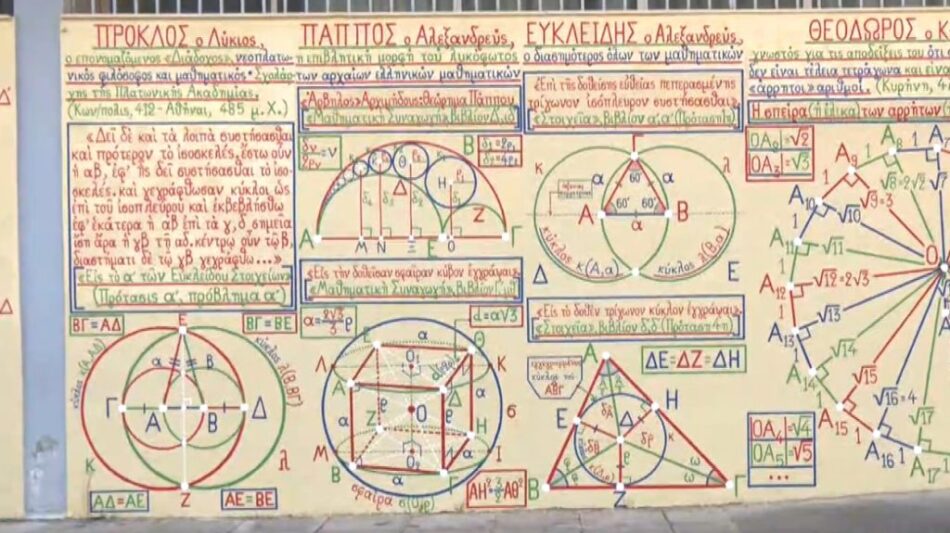 ΠΡΟΚΛΟΣ ο Λύκιος,
ο επονομαζόμενος «Διάδοχος», νεοπλατω-
νικός φιλόσοφος και μαθηματικός· Σχολάρ-
χης της Πλατωνικής Ακαδημίας.
(Κων/πολις, 412 - Αθήναι, 485 μ.Χ.)
«Δεῖ δὲ καὶ τὰ λοιπὰ συστήσασθαι
καὶ πρότερον τὸ ἰσοσκελές. ἔστω οὖν
ἡ αβ, ἐφ' ἧς δεῖ συστήσασθαι τὸ ἰσο-
σκελές. καὶ γεγράφθωσαν κύκλοι ὡς
ἐπὶ τοῦ ἰσοπλεύρου καὶ ἐκβεβλήσθω
ἐφ' ἑκάτερα ἡ αβ ἐπὶ τὰ γ, δ σημεῖα
ἴση ἄρα ἡ γβ τῇ αδ. κέντρῳ οὖν τῷ β,
διαστήματι δὲ τῷ γβ γεγράφθω...»
«Εἰς τὸ α' τῶν Εὐκλείδου Στοιχείων»
(Πρότασις α', πρόβλημα α')
ΒΓ=ΑΔ
ΒΓ=ΒΕ
Ε
κύκλος λ(Β,ΒΓ)
α
Β
Γ
Α
Β
Δ
Κ
λ
Ζ
ΑΔ=ΑΕ
ΑΕ=ΒΕ
ΠΑΠΠΟΣ ο Αλεξανδρεύς,
η επιβλητική μορφή του λυκόφωτος
των αρχαίων ελληνικών μαθηματικών
«Ἄρβηλος» Ἀρχιμήδους: θεώρημα Πάππου
«Μαθηματική Συναγωγή», βιβλίον Δ, ιδ
=ν
Β
Θ
Δ
Η
Ζ
Α
Μ
Ν
Ξ
Ε
Ο
Γ
«Εἰς τὴν δοθεῖσαν σφαῖραν κύβον ἐγγράψαι»
«Μαθηματική Συναγωγή», βιβλίον Γ
d=α√3
α
Θ
Λ
Κ
Α
Δ
Ζ
Ο
ρ
Η
Μ
Ι
Β
Γ
α
σφαίρα σ(Ο,ρ)
ΑΗ²=3/2ΑΘ²
ΕΥΚΛΕΙΔΗΣ ο Αλεξανδρεύς,
ο διασημότερος όλων των μαθηματικών
«Ἐπὶ τῆς δοθείσης εὐθείας πεπερασμένης
τρίγωνον ἰσόπλευρον συστήσασθαι»
«Στοιχεῖα», βιβλίον α', α' (Πρότασις 1η)
Γ
κ
λ
α
60°
α
Α
60°
60°
Β
α
κύκλος κ(Α,α)
κύκλος λ(Β,α)
Δ
Ε
«Εἰς τὸ δοθὲν τρίγωνον κύκλον ἐγγράψαι»
«Στοιχεῖα», βιβλίον δ, δ (Πρότασις 4η)
ΔΕ=ΔΖ=ΔΗ
Α
Ε
Δ
Η
κ
φ
φ
ω
ω
Β
Ζ
Γ
ΘΕΟΔΩΡΟΣ
γνωστός για τις αποδείξεις του ότι
δεν είναι τέλεια τετράγωνα και είναι
«άρρητοι» αριθμοί. (Κυρήνη,
Η σπείρα (ή έλικα) των αρρήτων
ΟΑ₂=√2
ΟΑ₃=√3
Α₉
Α₈
√8=2√2
√7
√9=3
Α₁₀
√10
Α₁₁
√11
Α₁₂
√12=2√3
Α₁₃
√13
√14
Α₁₄
√15
Α₁₅
√16=4
Α₁₆
Α₁₇
√17
Ο
ΟΑ₄=√4
ΟΑ₅=√5
...